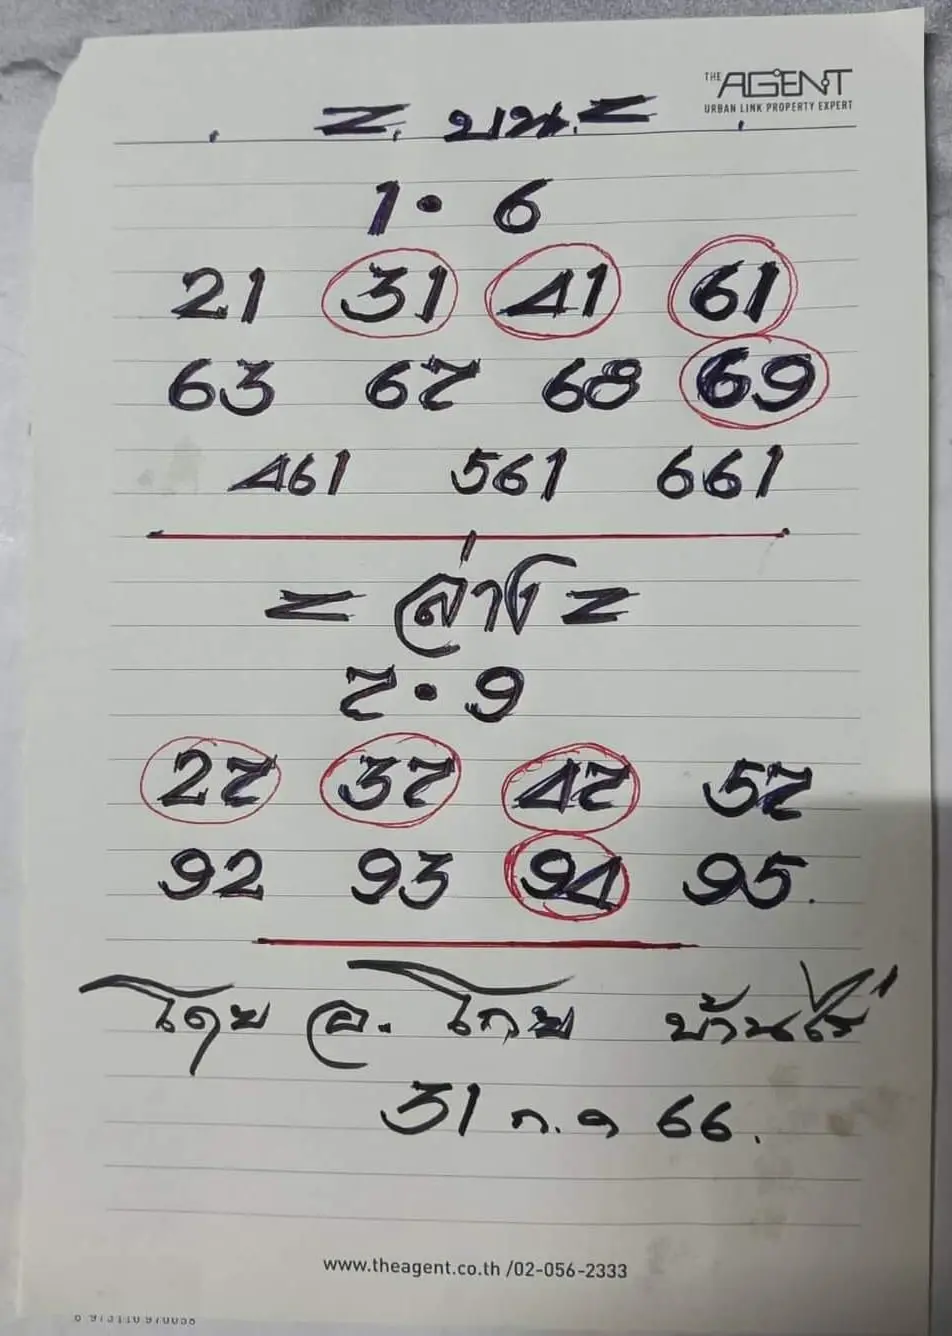 THE AGENT
URBAN LINK PROPERTY EXPERT
= บน =
1 • 6
21 31 41 61
63 67 68 69
461 561 661
= ล่าง =
7 • 9
27 37 47 57
92 93 94 95
โดย อ. โกย บ้านไร่
31 ก.ค 66.
www.theagent.co.th /02-056-2333